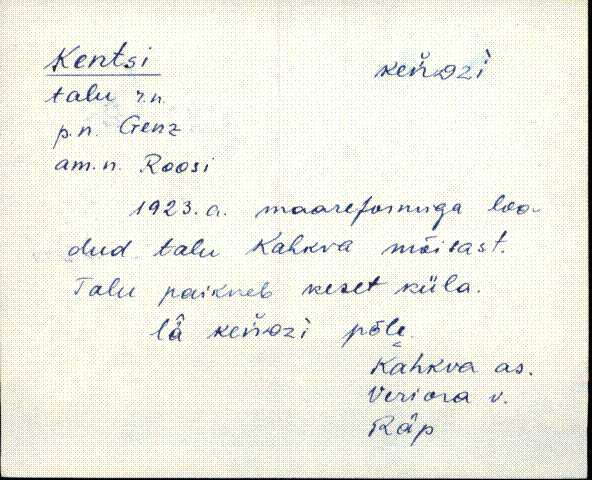 Kentsi keǹʒi
talu r.n.
p.n. Genz
am.n. Roosi
1923.a. maareformiga loo-
dud talu Kahkva mõisast.
Talu paikneb keset küla.
lǟ põle
Kahkva as.
Veriora v.
Räp